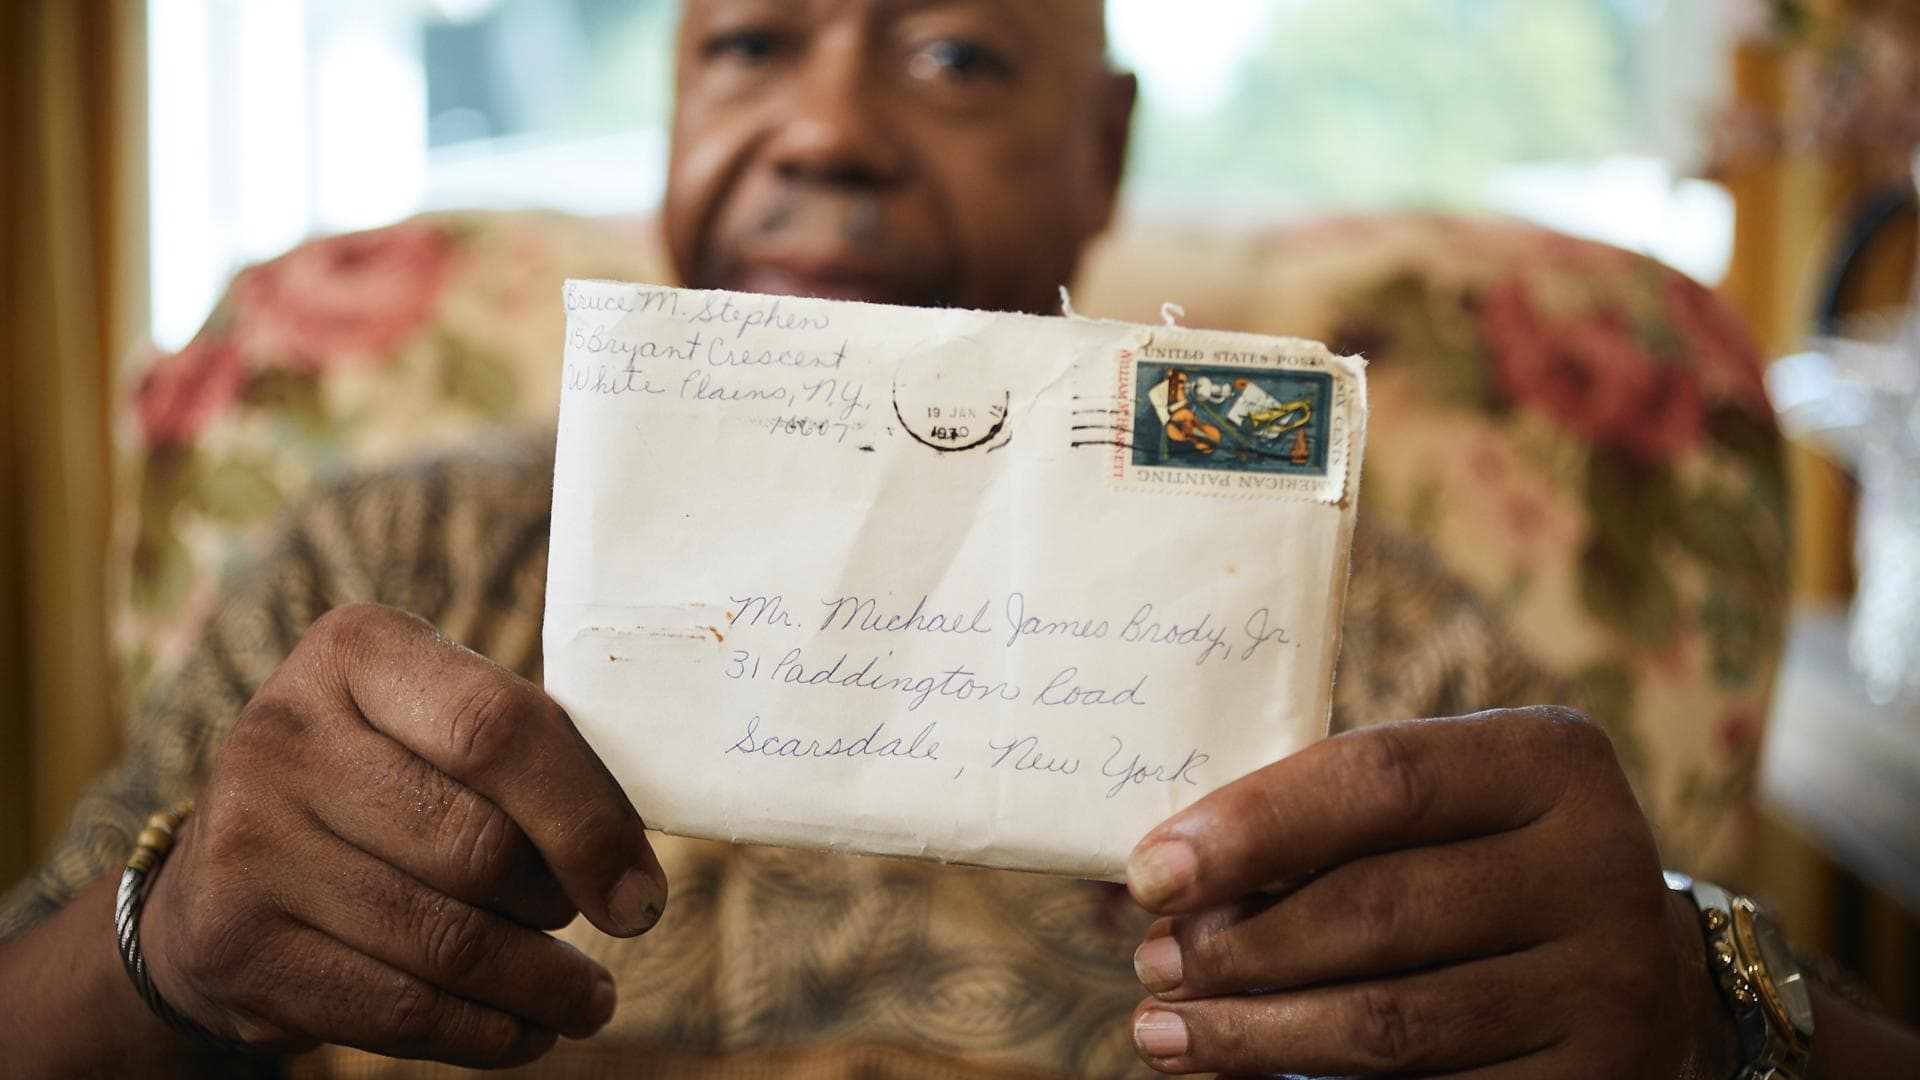 Bruce M. Stephen
15 Bryant Crescent
White Plains, N.Y.
10607
19 JAN
1970
UNITED STATES POSTA
WILLIAM M. HARNETT
SIX CENTS
AMERICAN PAINTING
Mr. Michael James Brody, Jr.
31 Paddington Road
Scarsdale, New York